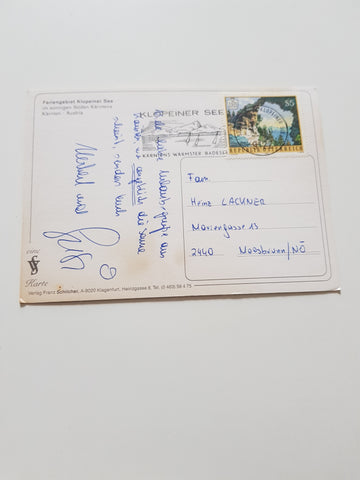 Feriengebiet Klopeiner See
im sonnigen Süden Kärntens
Kärnten - Austria
KLOPEINER SEE
KÄRNTENS WÄRMSTER BADESEE
S5
REPUBLIK ÖSTERREICH
Liebe Urlaubsgrüße aus
wo angeblich die Sonne
scheint, senden Euch
Michael und
Fam.
Herma LACKNER
Mariengasse 13
2440 Moosbrunn/NÖ
eine
Karte
Verlag Franz Schilcher, A-9020 Klagenfurt, Heinzgasse 6, Tel. (0 463) 56 4 75